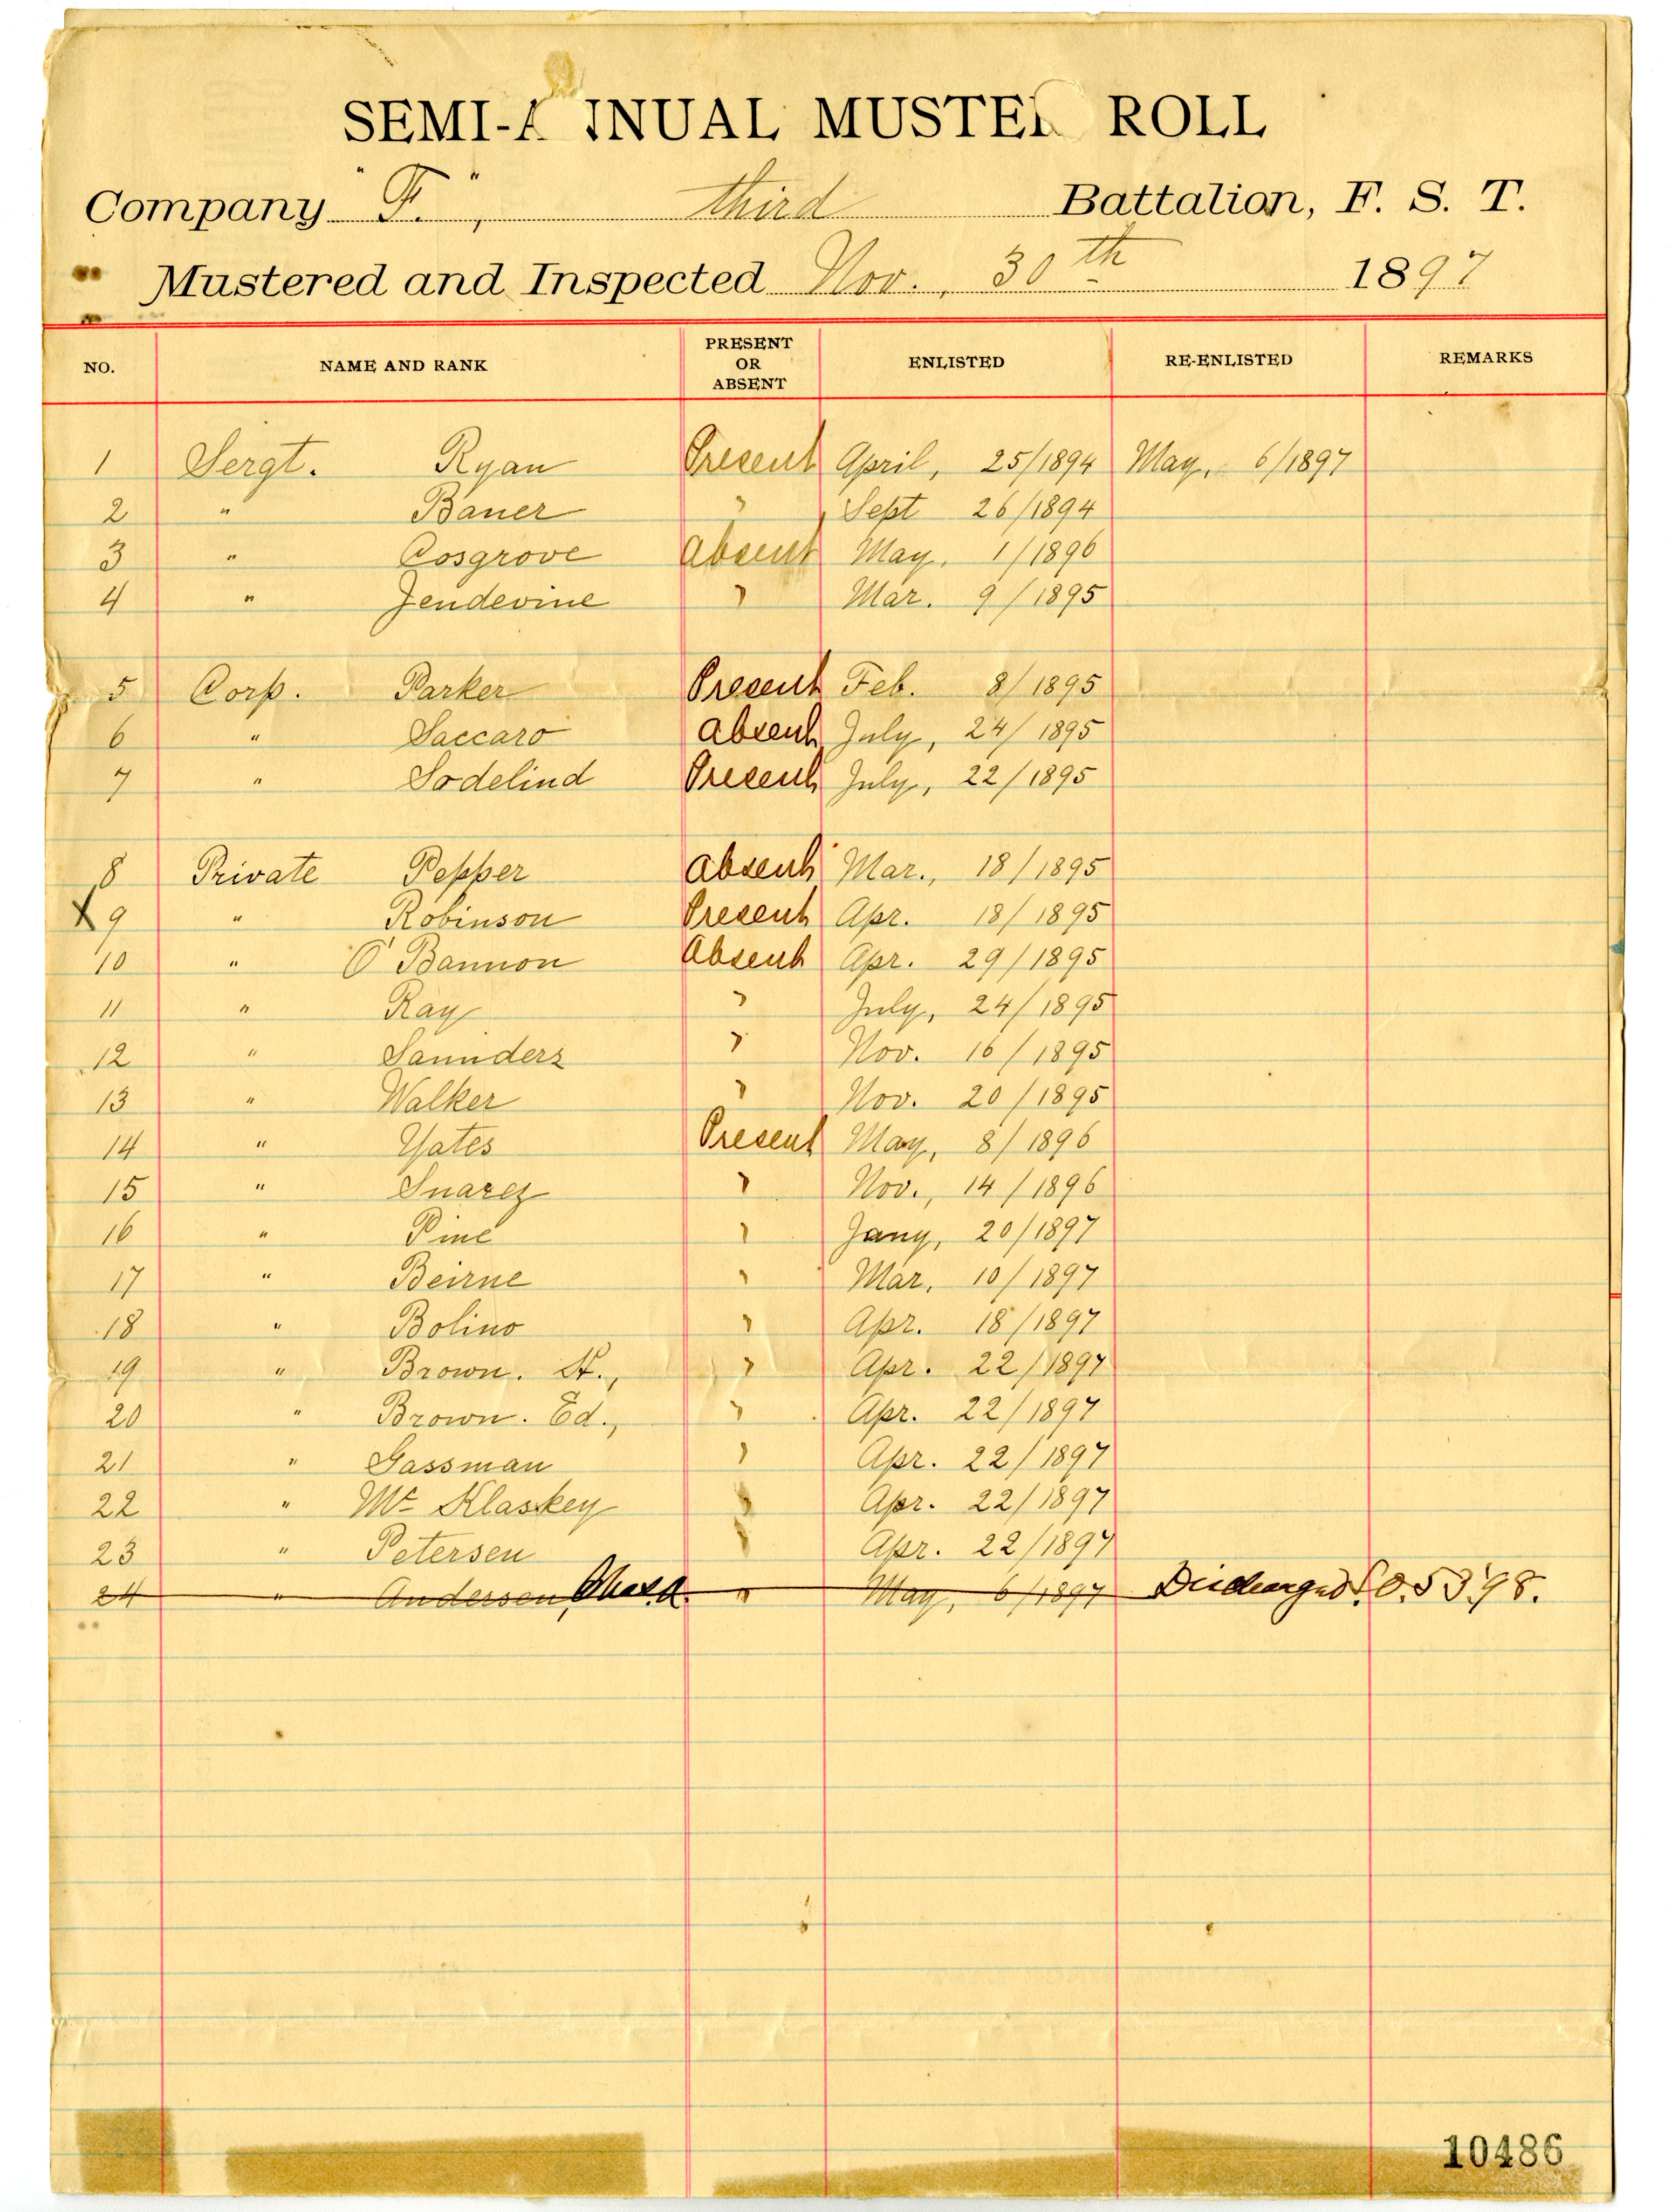 SEMI-ANNUAL MUSTER ROLL
Company "F.", third Battalion, F. S. T.
Mustered and Inspected Nov., 30th 1897
NO. NAME AND RANK PRESENT OR ABSENT ENLISTED RE-ENLISTED REMARKS
1 Sergt. Ryan Present April, 25/1894 May, 6/1897
2 " Bauer " Sept 26/1894
3 " Cosgrove Absent May, 1/1896
4 " Jendevine " Mar. 9/1895
5 Corp. Parker Present Feb. 8/1895
6 " Saccaro Absent July, 24/1895
7 " Sodelind Present July, 22/1895
8 Private Pepper Absent Mar., 18/1895
X 9 " Robinson Present Apr. 18/1895
10 " O'Bannon Absent Apr. 29/1895
11 " Ray " July, 24/1895
12 " Saunders " Nov. 16/1895
13 " Walker " Nov. 20/1895
14 " Yates Present May, 8/1896
15 " Suarez " Nov., 14/1896
16 " Pine " Jany, 20/1897
17 " Beirne " Mar, 10/1897
18 " Bolino " Apr. 18/1897
19 " Brown. St., " Apr. 22/1897
20 " Brown. Ed., " Apr. 22/1897
21 " Gassman " Apr. 22/1897
22 " Mc Klaskey " Apr. 22/1897
23 " Petersen " Apr. 22/1897
24 " Andersen, Chas. A. " May, 6/1897 Discharged S.O. 53.'98.
10486